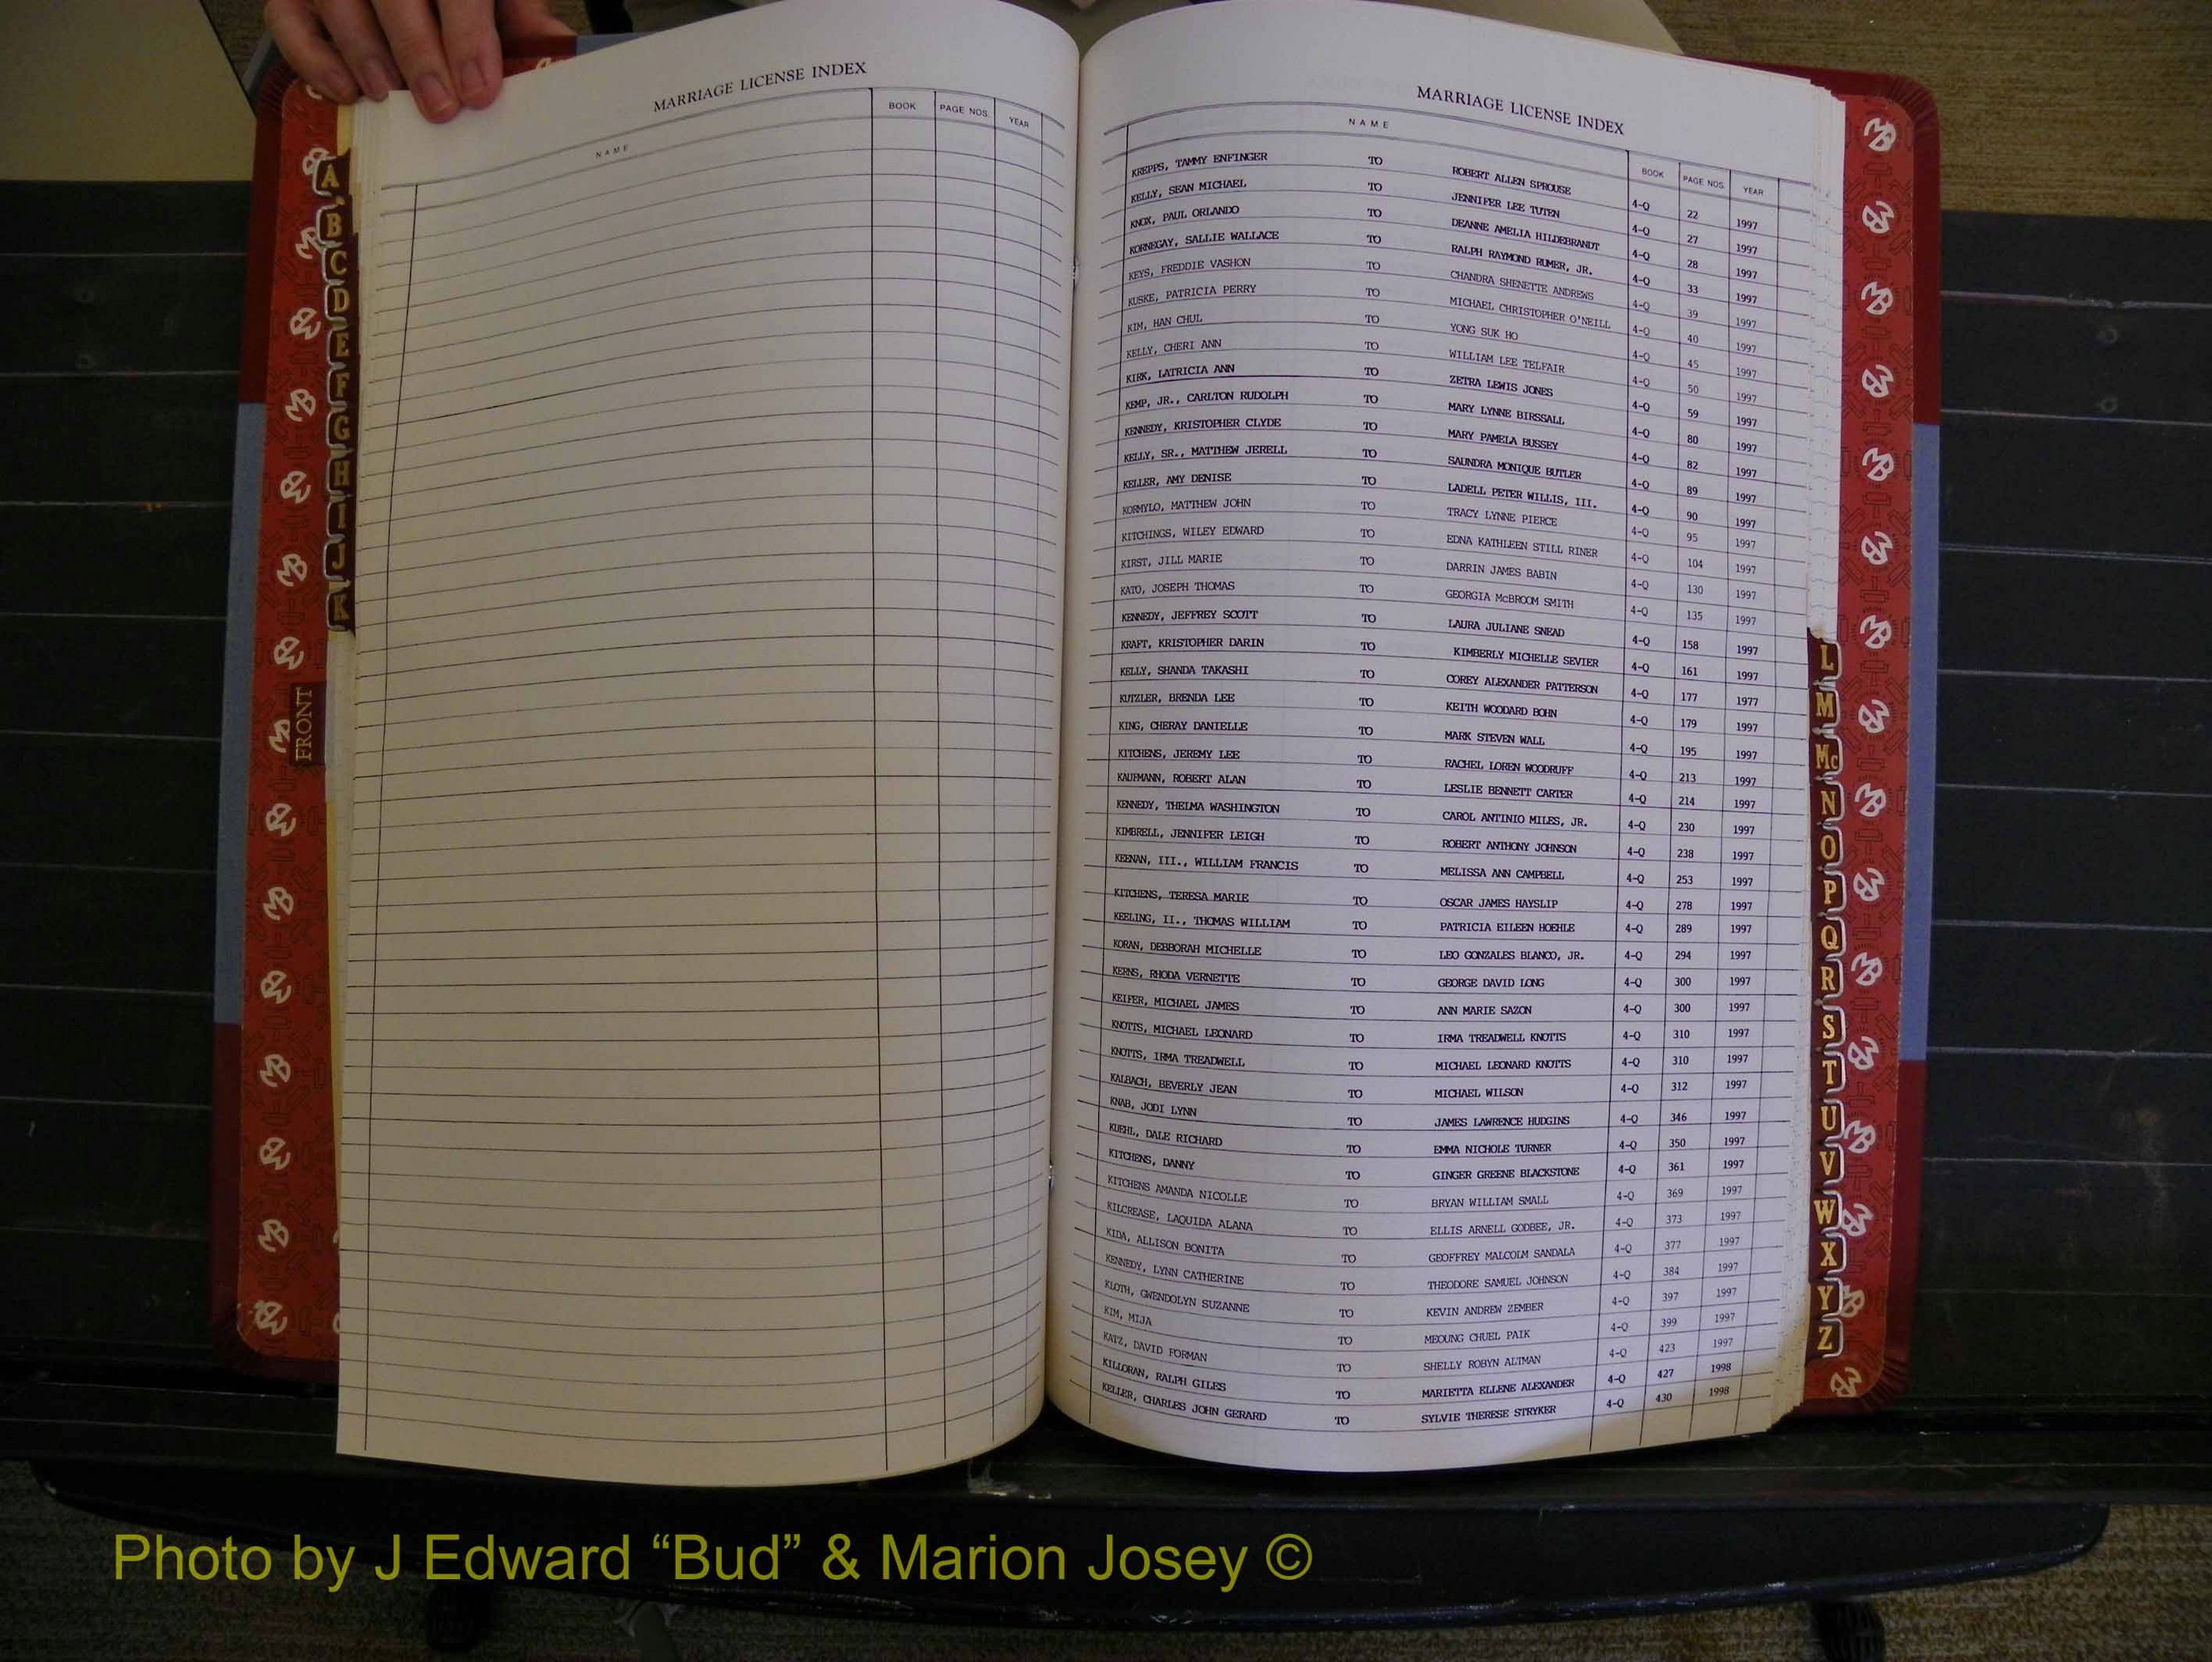 MARRIAGE LICENSE INDEX
NAME BOOK PAGE NOS. YEAR
A
B
C
D
E
F
G
H
I
J
K
FRONT
MARRIAGE LICENSE INDEX
NAME BOOK PAGE NOS. YEAR
KREPPS, TAMMY ENFINGER TO ROBERT ALLEN SPROUSE 4-Q 22 1997
KELLY, SEAN MICHAEL TO JENNIFER LEE TUTEN 4-Q 27 1997
KNOX, PAUL ORLANDO TO DEANNE AMELIA HILDEBRANDT 4-Q 28 1997
KORNEGAY, SALLIE WALLACE TO RALPH RAYMOND RUMER, JR. 4-Q 33 1997
KEYS, FREDDIE VASHON TO CHANDRA SHENETTE ANDREWS 4-Q 39 1997
KUSKE, PATRICIA PERRY TO MICHAEL CHRISTOPHER O'NEILL 4-Q 40 1997
KIM, HAN CHUL TO YONG SUK HO 4-Q 45 1997
KELLY, CHERI ANN TO WILLIAM LEE TELFAIR 4-Q 50 1997
KIRK, LATRICIA ANN TO ZETRA LEWIS JONES 4-Q 59 1997
KEMP, JR., CARLTON RUDOLPH TO MARY LYNNE BIRSSALL 4-Q 80 1997
KENNEDY, KRISTOPHER CLYDE TO MARY PAMELA BUSSEY 4-Q 82 1997
KELLY, SR., MATTHEW JERELL TO SAUNDRA MONIQUE BUTLER 4-Q 89 1997
KELLER, AMY DENISE TO LADELL PETER WILLIS, III. 4-Q 90 1997
KORMYLO, MATTHEW JOHN TO TRACY LYNNE PIERCE 4-Q 95 1997
KITCHINGS, WILEY EDWARD TO EDNA KATHLEEN STILL RINER 4-Q 104 1997
KIRST, JILL MARIE TO DARRIN JAMES BABIN 4-Q 130 1997
KATO, JOSEPH THOMAS TO GEORGIA McBROOM SMITH 4-Q 135 1997
KENNEDY, JEFFREY SCOTT TO LAURA JULIANE SNEAD 4-Q 158 1997
KRAFT, KRISTOPHER DARIN TO KIMBERLY MICHELLE SEVIER 4-Q 161 1997
KELLY, SHANDA TAKASHI TO COREY ALEXANDER PATTERSON 4-Q 177 1977
KUTZLER, BRENDA LEE TO KEITH WOODARD BOHN 4-Q 179 1997
KING, CHERAY DANIELLE TO MARK STEVEN WALL 4-Q 195 1997
KITCHENS, JEREMY LEE TO RACHEL LOREN WOODRUFF 4-Q 213 1997
KAUFMANN, ROBERT ALAN TO LESLIE BENNETT CARTER 4-Q 214 1997
KENNEDY, THELMA WASHINGTON TO CAROL ANTINIO MILES, JR. 4-Q 230 1997
KIMBRELL, JENNIFER LEIGH TO ROBERT ANTHONY JOHNSON 4-Q 238 1997
KEENAN, III., WILLIAM FRANCIS TO MELISSA ANN CAMPBELL 4-Q 253 1997
KITCHENS, TERESA MARIE TO OSCAR JAMES HAYSLIP 4-Q 278 1997
KEELING, II., THOMAS WILLIAM TO PATRICIA EILEEN HOEHLE 4-Q 289 1997
KORAN, DEBBORAH MICHELLE TO LEO GONZALES BLANCO, JR. 4-Q 294 1997
KERNS, RHODA VERNETTE TO GEORGE DAVID LONG 4-Q 300 1997
KEIFER, MICHAEL JAMES TO ANN MARIE SAZON 4-Q 300 1997
KNOTTS, MICHAEL LEONARD TO IRMA TREADWELL KNOTTS 4-Q 310 1997
KNOTTS, IRMA TREADWELL TO MICHAEL LEONARD KNOTTS 4-Q 310 1997
KALBACH, BEVERLY JEAN TO MICHAEL WILSON 4-Q 312 1997
KNAB, JODI LYNN TO JAMES LAWRENCE HUDGINS 4-Q 346 1997
KUEHL, DALE RICHARD TO EMMA NICHOLE TURNER 4-Q 350 1997
KITCHENS, DANNY TO GINGER GREENE BLACKSTONE 4-Q 361 1997
KITCHENS AMANDA NICOLLE TO BRYAN WILLIAM SMALL 4-Q 369 1997
KILCREASE, LAQUIDA ALANA TO ELLIS ARNELL GODBEE, JR. 4-Q 373 1997
KIDA, ALLISON BONITA TO GEOFFREY MALCOLM SANDALA 4-Q 377 1997
KENNEDY, LYNN CATHERINE TO THEODORE SAMUEL JOHNSON 4-Q 384 1997
KLOTH, GWENDOLYN SUZANNE TO KEVIN ANDREW ZEMBER 4-Q 397 1997
KIM, MIJA TO MEOUNG CHUEL PAIK 4-Q 399 1997
KATZ, DAVID FORMAN TO SHELLY ROBYN ALTMAN 4-Q 423 1997
KILLORAN, RALPH GILES TO MARIETTA ELLENE ALEXANDER 4-Q 427 1998
KELLER, CHARLES JOHN GERARD TO SYLVIE THERESE STRYKER 4-Q 430 1998
L
M
Mc
N
O
P
Q
R
S
T
U
V
W
X
Y
Z
Photo by J Edward “Bud” & Marion Josey ©